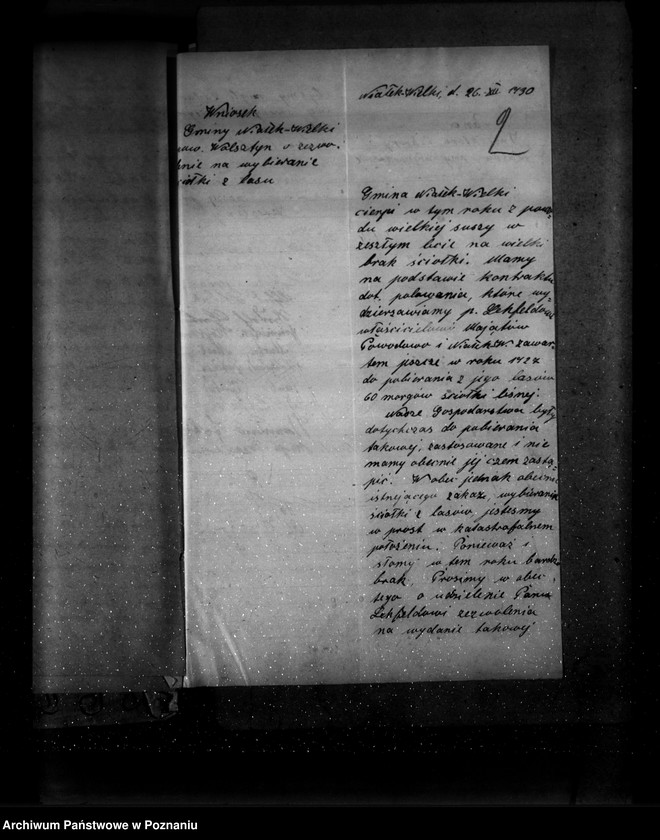 Wniosek
Gminy Niałek-Wielki
pow. Wolsztyn o zezwo-
lenie na wybieranie
ściółki z lasu
Niałek-Wielki, d. 26. XII. 1930
2
Gmina Niałek-Wielki
cierpi w tym roku z powo-
du wielkiej suszy w
zeszłym lecie na wielki
brak ściółki. Mamy
na podstawie kontraktu
dot. polowania, które wy-
dzierżawiamy p.
właścicielowi Majątów
Powodowo i Niałek-W. zawar-
tem jeszcze w roku 1927
do pobierania z jego lasów
60 morgów ściółki leśnej.
Nasze Gospodarstwa były
dotychczas do pobierania
takowej, zastosowane i nie
mamy obecnie jej czem zastą-
pić. W obec jednak obecnie
istniejącego zakazu, wybierania
ściółki z lasów, jesteśmy
w prost w katastrofalnem
położeniu. Ponieważ i
słomy w tem roku bardzo
brak. Prosimy w obec
tego o udzielenie Panu
zezwolenia
na wydanie takowej
Archiwum Państwowe w Poznaniu